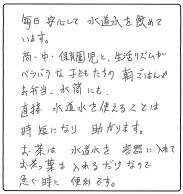 毎日安心して 水道水を飲めて
います。
高・中・保育園児と、生活リズムが
バラバラな子どもたちの 朝ごはんや
お弁当、水筒にも、
直接 水道水を使えることは
時短になり 助かります。
お茶は 水道水を 容器に入れて
お茶っ葉を入れるだけなので
急ぐ時に 便利です。